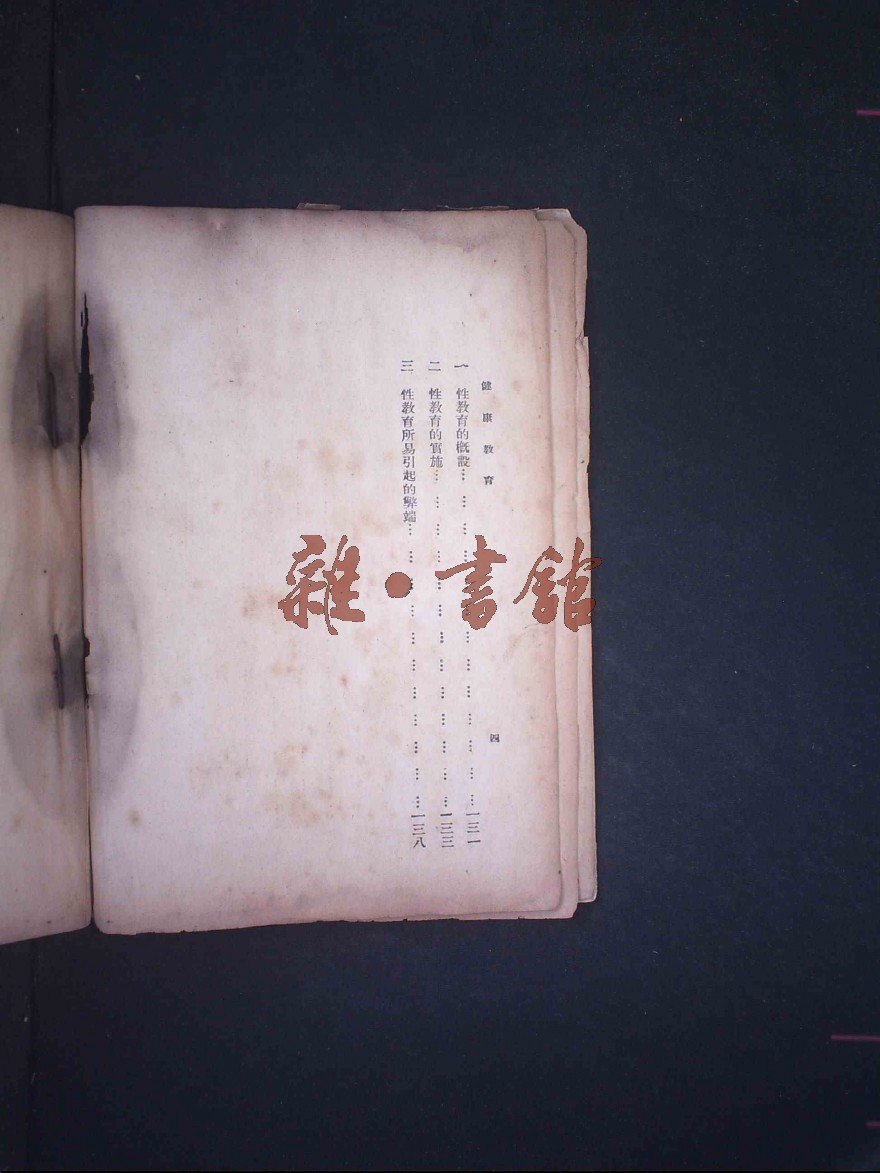 健康教育
四
一 性教育的概說⋯⋯⋯⋯⋯⋯⋯⋯⋯⋯⋯⋯一三一
二 性教育的實施⋯⋯⋯⋯⋯⋯⋯⋯⋯⋯⋯⋯一三三
三 性教育所易引起的弊端⋯⋯⋯⋯⋯⋯⋯⋯⋯⋯⋯一三八
雜·書館